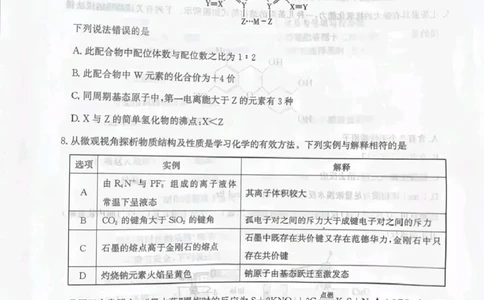 Y=X Y Y X=Y
Z···M–Z
下列说法错误的是
A. 此配合物中配位体数与配位数之比为 1∶2
B. 此配合物中 W 元素的化合价为+4价
C. 同周期基态原子中,第一电离能大于 Z 的元素有 3 种
D. X 与 Z 的简单氢化物的沸点:X<Z
8. 从微观视角探析物质结构及性质是学习化学的有效方法。下列实例与解释相符的是
选项 实例 解释
A 由 R₄N⁺ 与 PF₆⁻ 组成的离子液体常温下呈液态 其离子体积较大
B CO₂ 的键角大于 SiO₂ 的键角 孤电子对之间的斥力大于成键电子对之间的斥力
C 石墨的熔点高于金刚石的熔点 石墨中既存在共价键又存在范德华力,金刚石中只存在共价键
D 灼烧钠元素火焰呈黄色 钠原子由基态跃迁至激发态